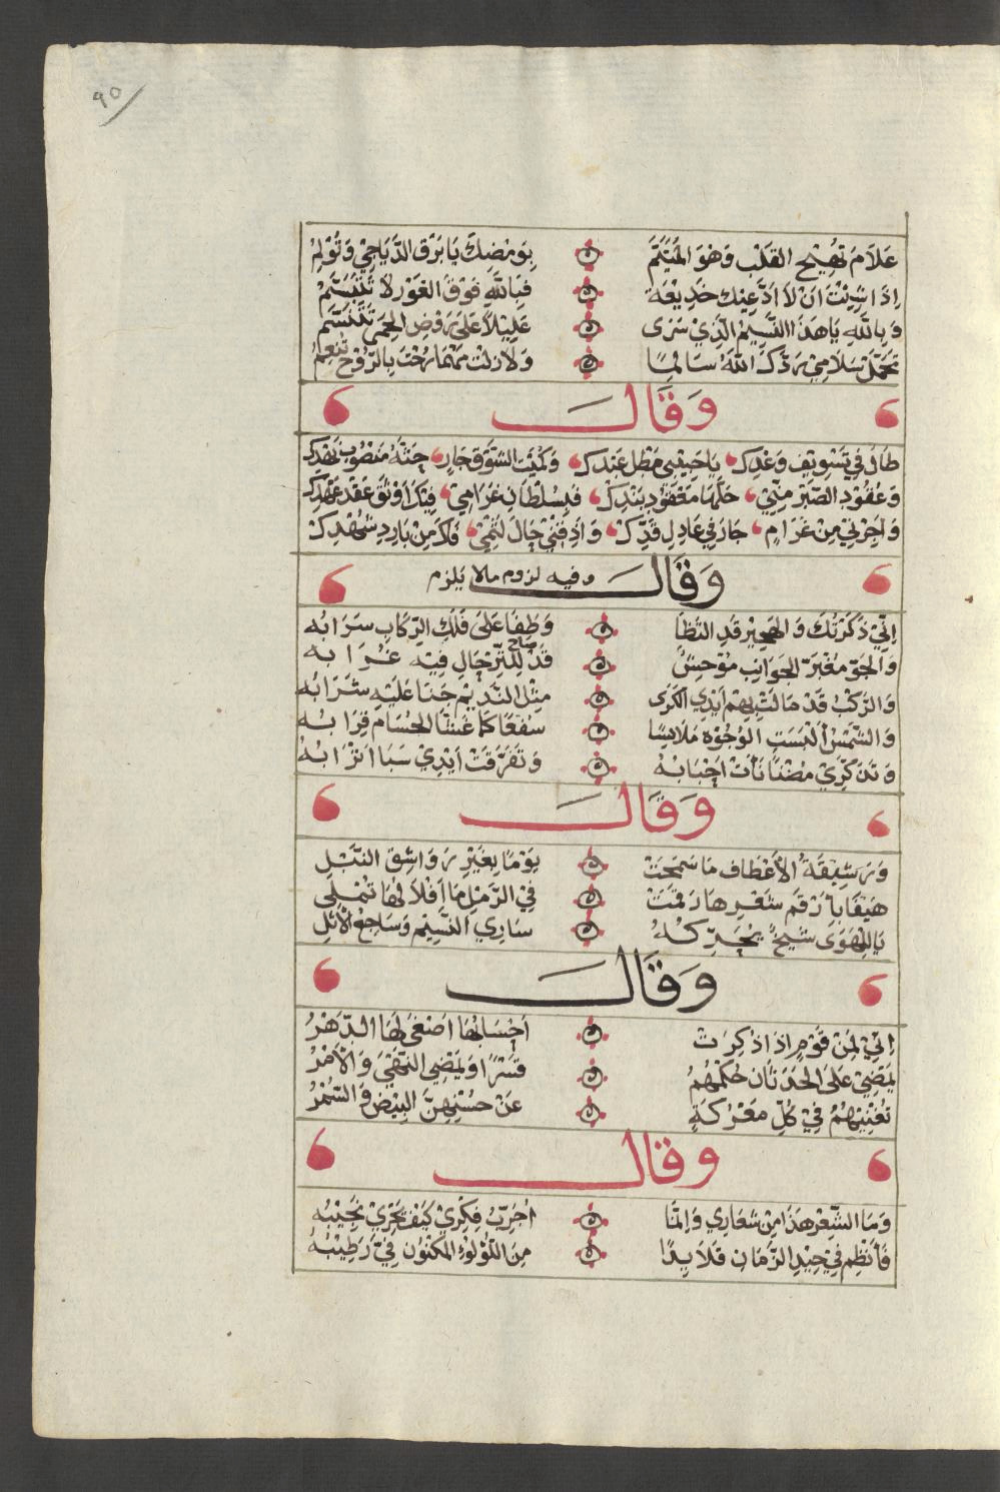 ٩٥
عَلَامَ تُهَيِّج القَلْب وَهْوَ المُتَيَّمُ ۞ بِوَمْضِكَ يَا بَرْق الدَّيَاجِيْ وَتُوْلِمُ
اِذَا شِئْتَ اَنْ لَا اَدَّعِيْكَ خَدِيْعَة ۞ فَبَاللَّهِ فَوْقَ الغَوْر لَا تَتَبَسَّمُ
وَبِاللَّهِ يَاهَذَا النَّسِيْمُ الَّذِيْ سَرَى ۞ عَلِيْلًا عَلَى رَوْضِ الحِمَى تَتَنَسَّمُ
تَحَمَّلْ سَلَامِيْ رَدَّكَ اللَّهُ سَالِمًا ۞ وَلَا زِلْتَ مَهْمَا رُحْتَ بِالرَّوْح تَنْعَمُ
وَقَالَ
طَالَ فِي تَسْوِيْف وَعْدِكْ يَا حَبِيْبِي مَطْل عَبْدَكْ وَكُمَيْتُ الشَّوْق جَارٍ حِثَّهُ مَنْصُوْب نَهْدِكْ
وَعُقُوْد الصَّبْر مِنِّيْ حَلَّهَا مَعْقُوْد بَنْدِكْ فَبِسُلْطَانِ غَرَامِيْ فِيْكَ اَوْثِقْ عَقْد عَهْدِكْ
وَاَجِرْنِيْ مِنْ غَرَامٍ جَارَ فِي عَادِلِ قَدِّكْ وَاَذِقْنِيْ حَالَ لَثْمِيْ فَاكَ مِنْ بَارِدِ شَهْدِكْ
وَقَالَ وفيه لزوم مالا يَلزم
اِنِّيْ ذَكَرْتُكَ وَالهَجِيْر قَدِ الْتَظَا ۞ وَطَفَا عَلَى فَلَكِ الرِّكَابِ سَرَابُه
وَالجَوّ مُغْبَرّ الجَوَانِبِ مُوْحِشٌ ۞ قَدْ صَاحَ لِلتِّرْحَالِ فِيْهِ غُرَابُه
وَالرَّكْبُ قَدْ مَالَتْ بِهِمْ اَيْدِي الكَرَى ۞ مِثْل النَّدِيْم جَنَا عَلَيْهِ شَرَابُه
وَالشَّمْسُ اَلْبَسَتِ الوُجُوْه مَلَابِسًا ۞ سُفْعًا كَمَا غَشَّا الحُسَام قِرَابُه
وَتَذَكُّرِيْ مُضْنًا نَأَتْ اَحْبَابُهُ ۞ وَتَفَرَّقَتْ اَيْدِيْ سَبَا اَتْرَابُهُ
وَقَالَ
وَرَشِيْقَةُ الْاَعْطَاف مَا سَمَحَتْ ۞ يَوْمًا بِغَيْرِ رَوَاشِقِ النَّبْلِ
هَيْفَا بِأَرْقَم شَعْرِهَا رَقَمَتْ ۞ فِيْ الرَّمْلِ مَا اَفْلَاكُهَا تُمْلِي
يَا لِلْهَوَى شَيْخٌ يُحَرِّكُهُ ۞ سَارِي النَّسِيْم وَسَاجِعُ الْاَثْلِ
وَقَالَ
اِنِّيْ لَمِنْ قَوْمٍ اِذَا ذُكِرَتْ ۞ اَحْسَابُهَا اَصْغَى لَهَا الدَّهْرُ
يَمْضِيْ عَلَى الحَدَثَان حُكْمُهُمُ ۞ قَسْرًا وَيَمْضِي النَّهْيُ وَالْاَمْرُ
تُغْنِيْهُمُ فِيْ كُلِّ مَعْرَكَةٍ ۞ عَنْ حُسْنِهِنَّ البِيْض وَالسُّمْرُ
وَقَالَ
وَمَا الشِّعْر هَذَا مِنْ شِعَارِي وَاِنَّمَا ۞ اُجَرِّبُ فِكْرِيْ كَيْفَ يَجْرِيْ نَجِيْبُهُ
فَأَنْظِم فِي جِيْدِ الزَّمَان قَلَايِدًا ۞ مِنَ اللُّؤْلُوْءِ المَكْنُوْن فِيْ رَطِيْبُهُ